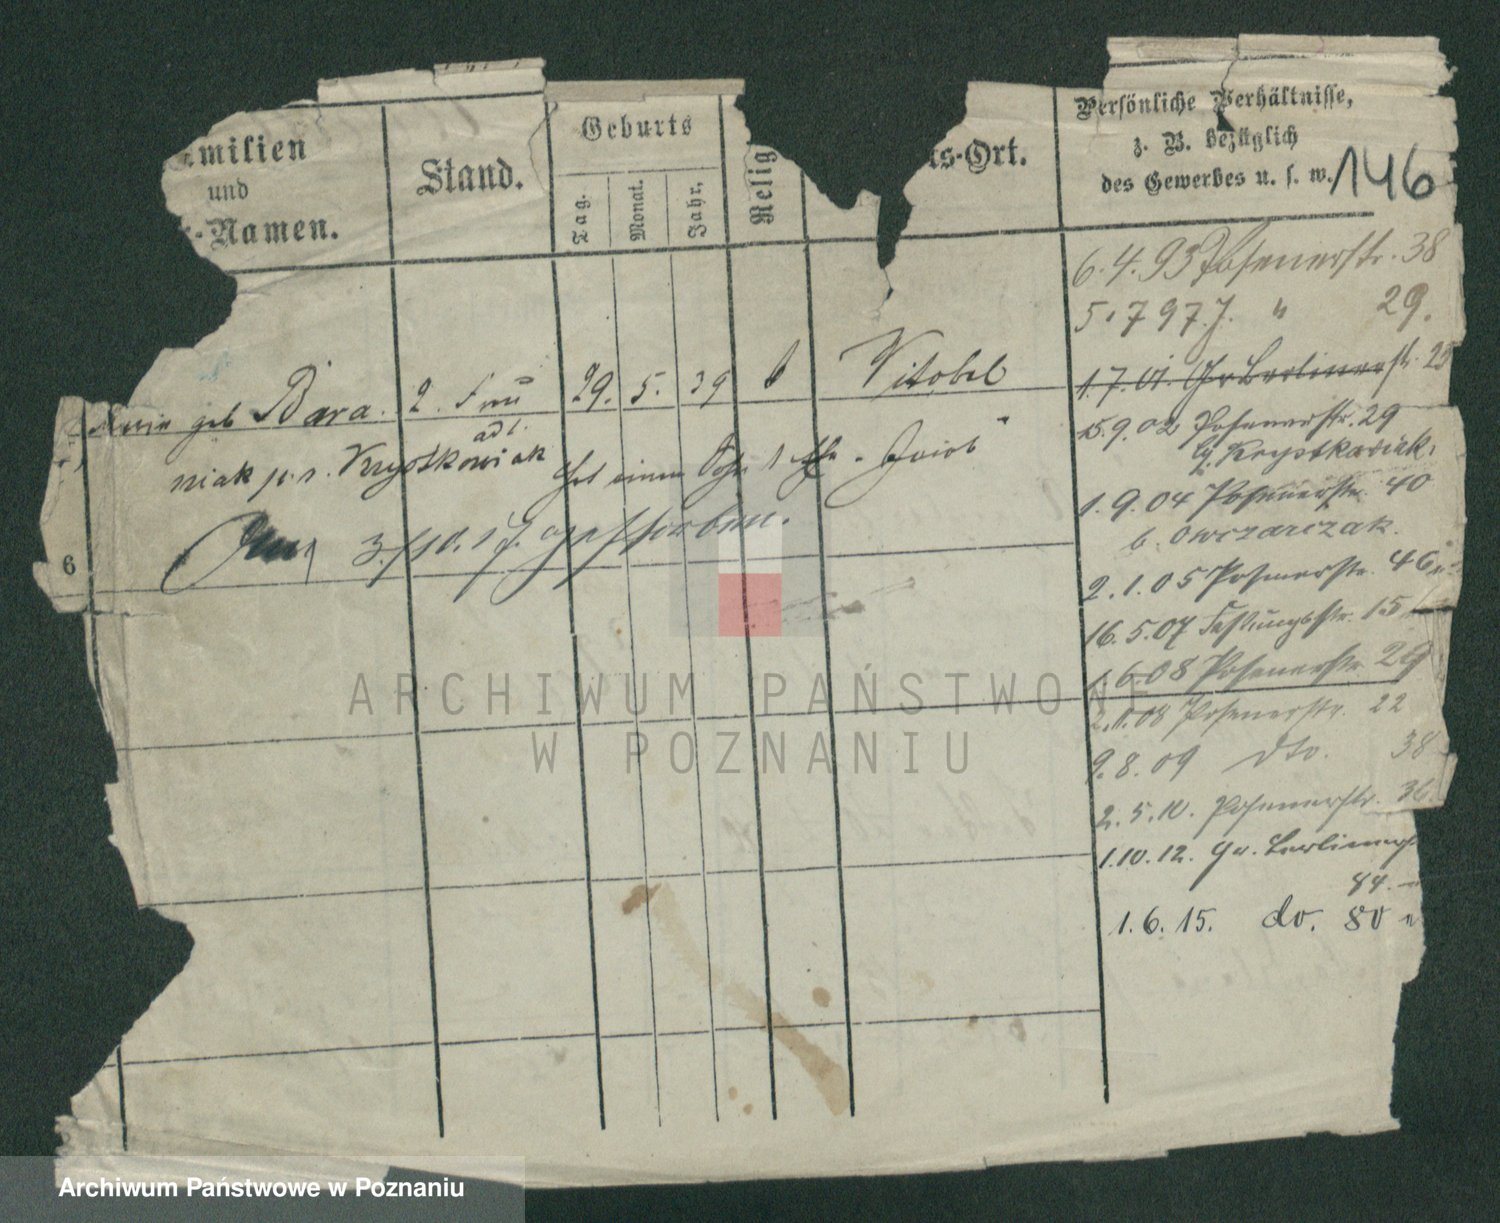 milien
und
-Namen.
Stand.
Geburts
Tag.
Monat.
Jahr.
Relig
s-Ort.
Persönliche Verhältnisse,
z. B. bezüglich
des Gewerbes u. s. w.
146
6.4.93 Posenerstr. 38
5.7 97. J. " 29.
1.7.01. Gr Berlinerstr. 23
15.9.02 Posenerstr. 29
b. Krystkowiak.
1.9.04 Posenerstr. 40
b. Owczarczak.
2.1.05 Posenerstr. 46
16.5.07 Festungsstr. 15
1.6.08 Posenerstr. 28
2.1.08 Posenerstr. 22
9.8.09 dto. 38
2.5.10. Posenerstr. 36
1.10.12. Gr. Berlinerstr
84.
1.6.15. do. 80
geb Bara. 2. Frau 29. 5. 39 k Vitobel
adl.
niak p. n. Krystkowiak hat einen
3/10.17. gestorben.
6
ARCHIWUM PAŃSTWOWE
W POZNANIU
Archiwum Państwowe w Poznaniu